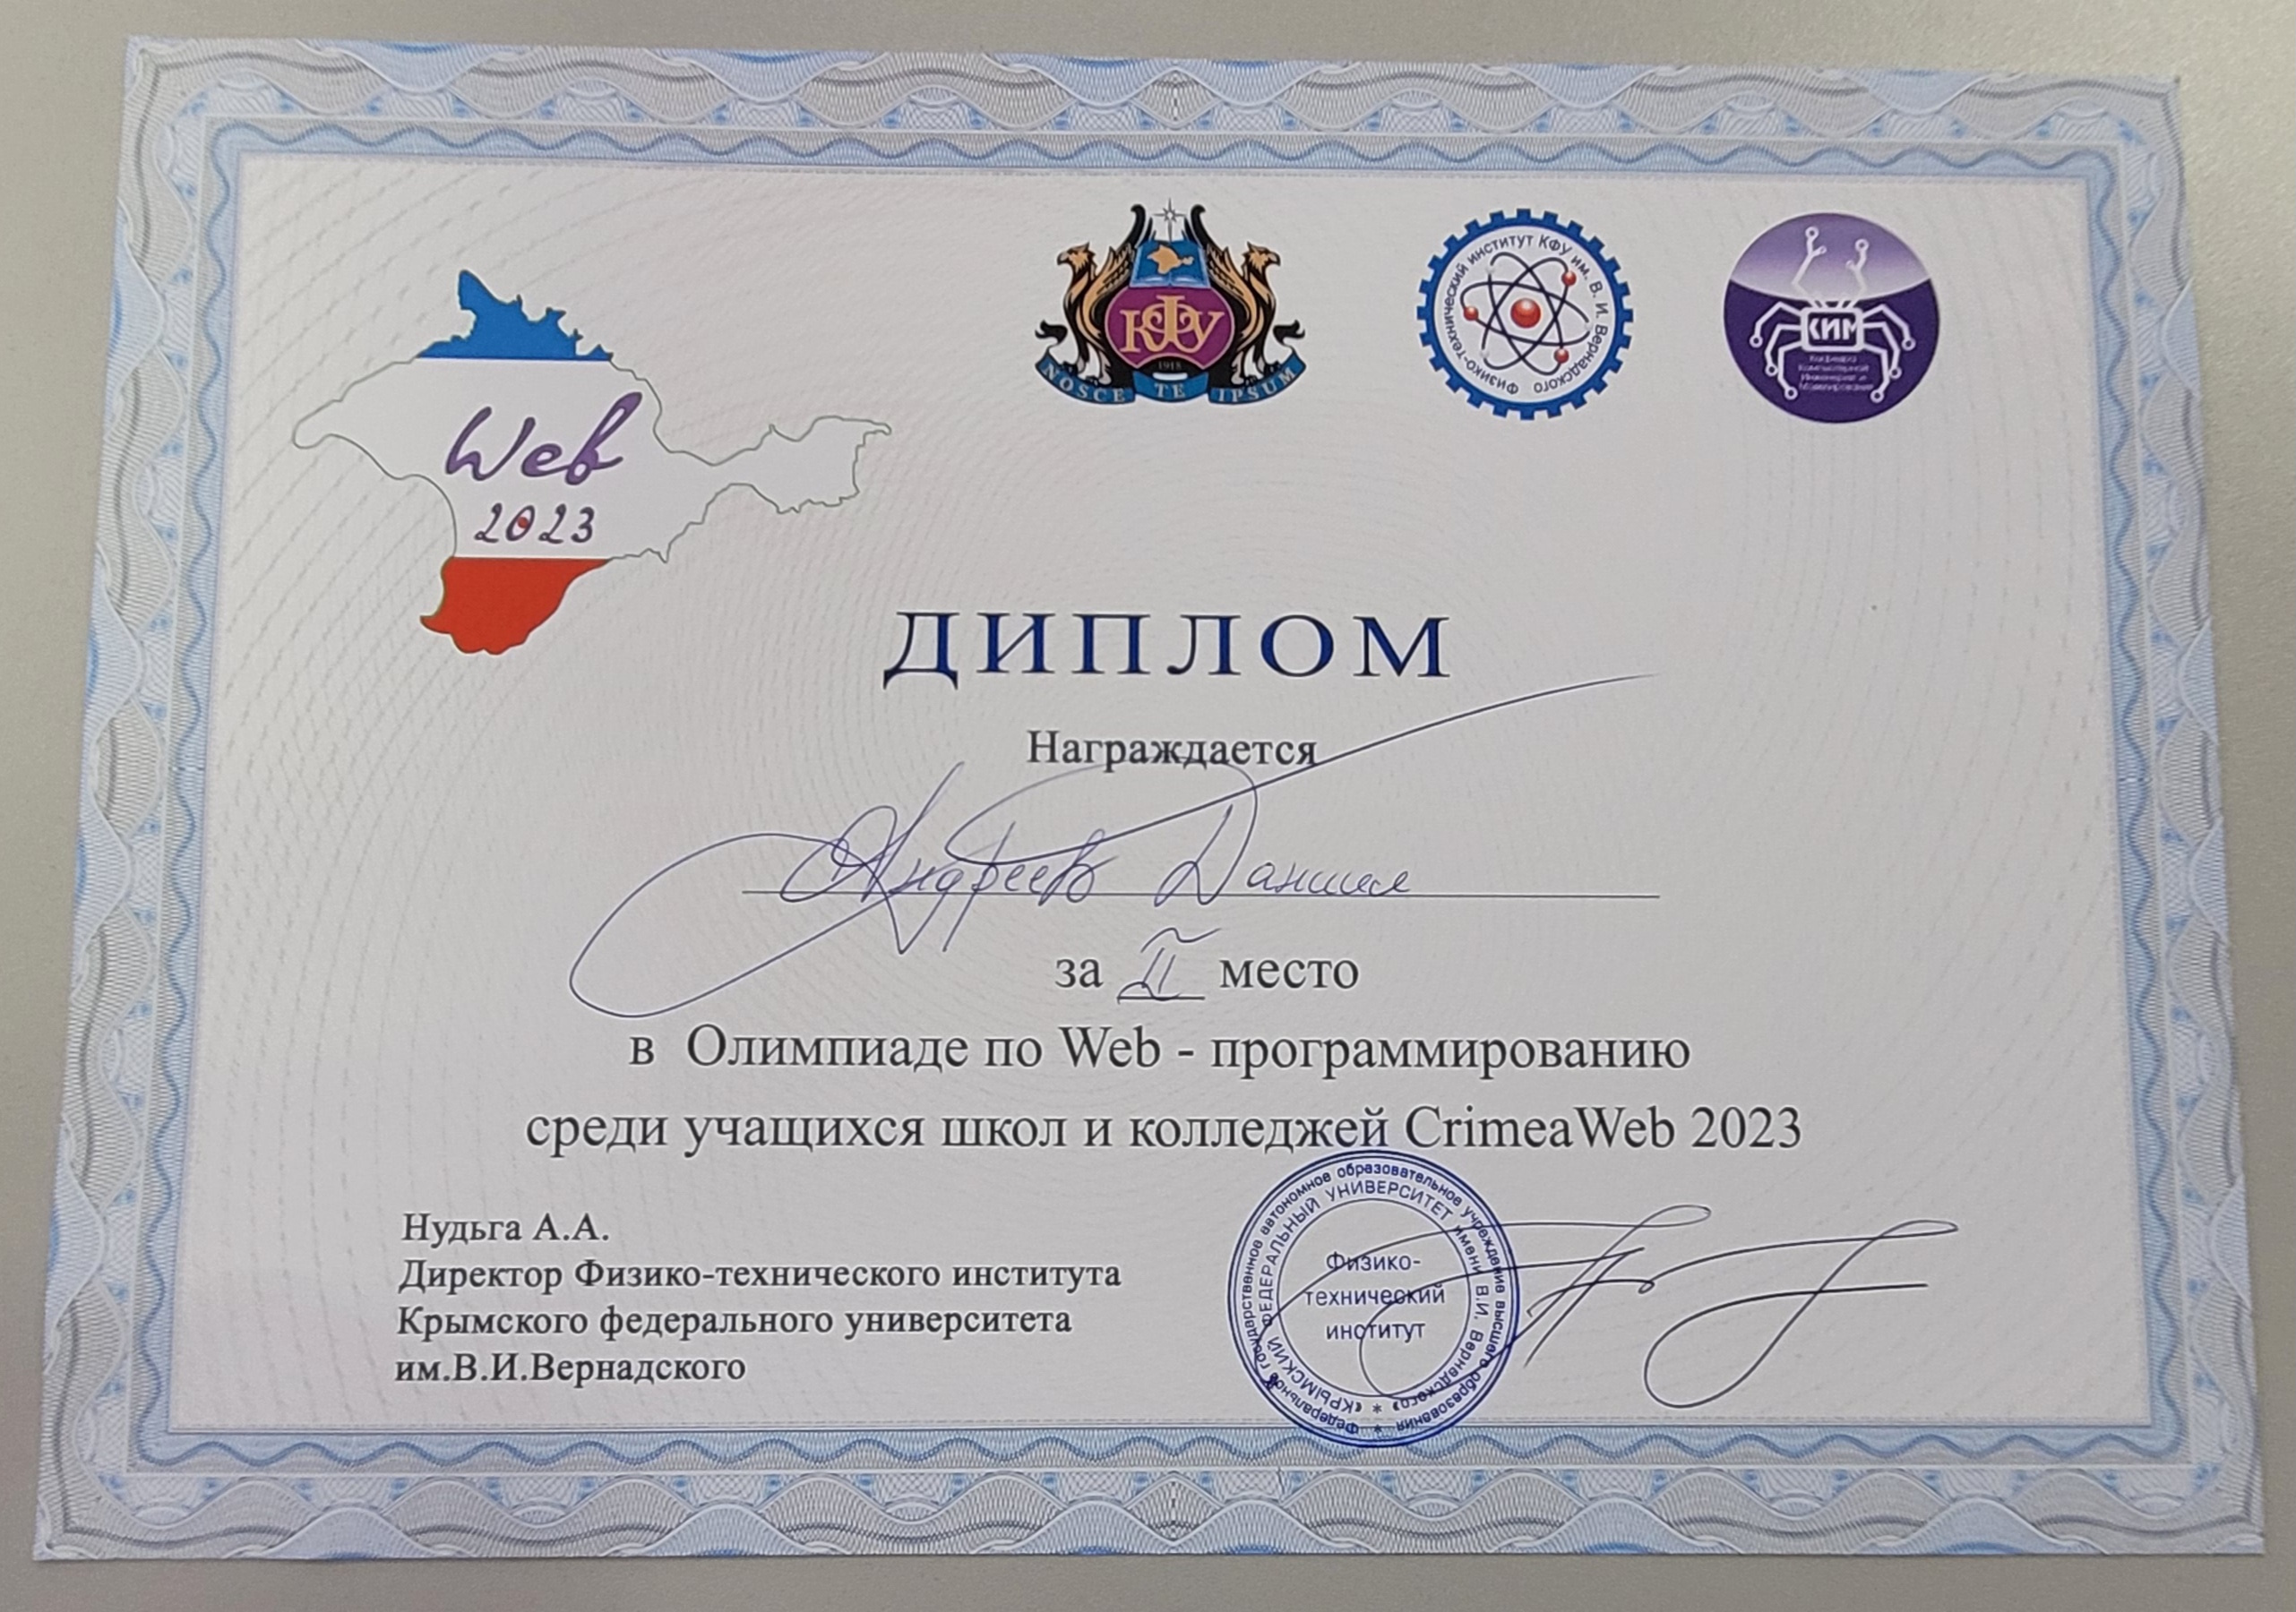 КФУ
1918
NOSCE TE IPSUM
Физико-технический институт КФУ им. В. И. Вернадского
КИМ
Кафедра
Компьютерной
Инженерии и
Моделирования
Web
2023
ДИПЛОМ
Награждается
Андреев Даниил
за II место
в Олимпиаде по Web - программированию
среди учащихся школ и колледжей CrimeaWeb 2023
Нудьга А.А.
Директор Физико-технического института
Крымского федерального университета
им.В.И.Вернадского
Федеральное государственное автономное образовательное учреждение высшего образования *
«КРЫМСКИЙ ФЕДЕРАЛЬНЫЙ УНИВЕРСИТЕТ имени В.И. Вернадского» *
Физико-
технический
институт